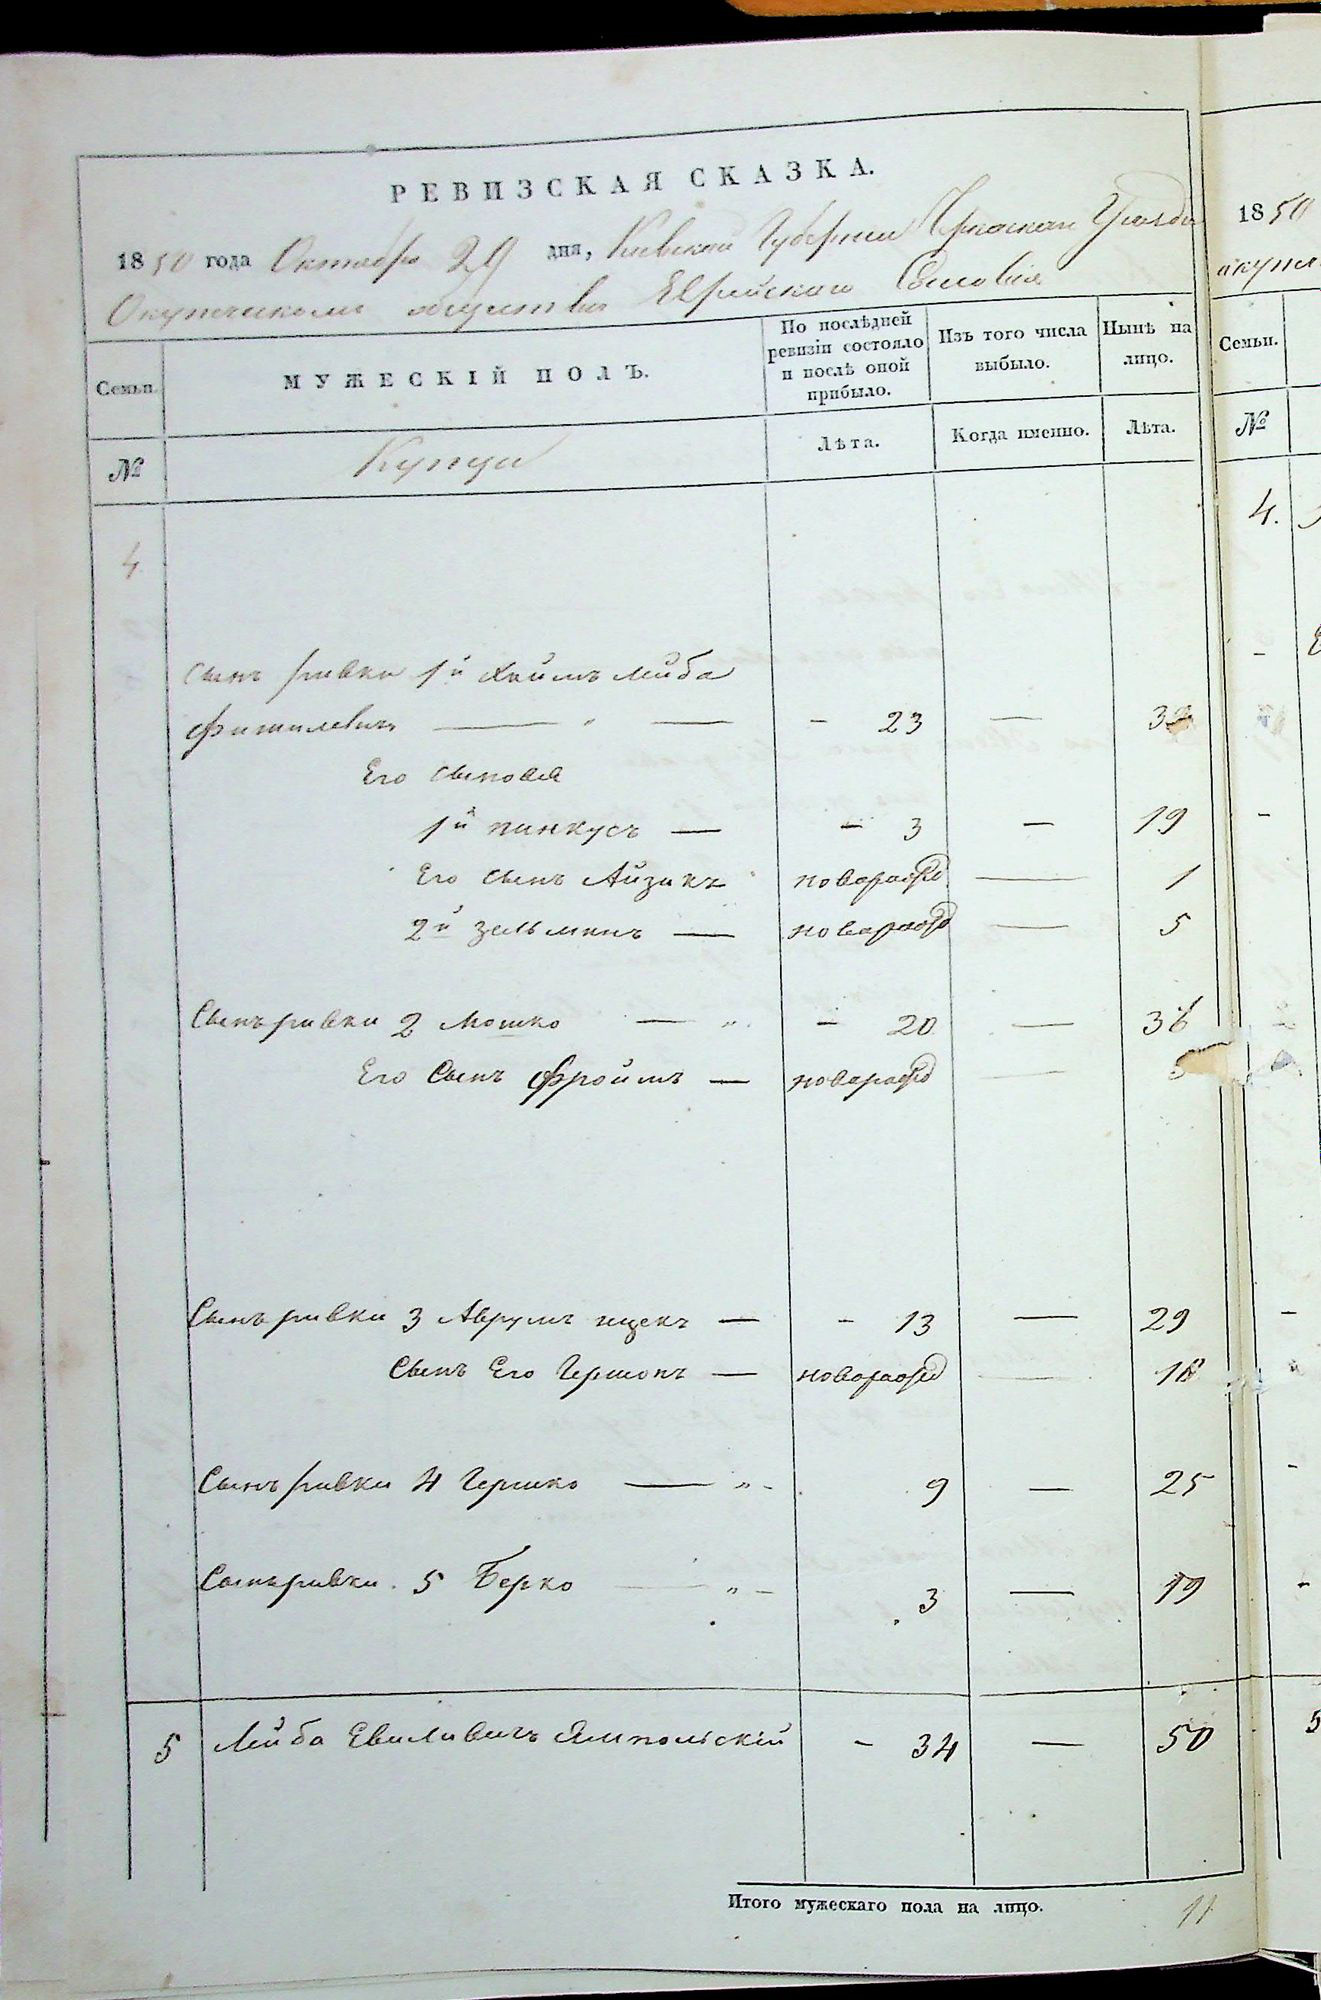 РЕВИЗСКАЯ СКАЗКА.
1850 года Октября 29 дня, Киевской Губернии Черкаскаго Уезда
общества Еврейскаго Сословія
Семьи.
МУЖЕСКІЙ ПОЛЪ.
По послѣдней ревизіи состояло и послѣ оной прибыло.
Изъ того числа выбыло.
Нынѣ на лицо.
№
Купцы
Лѣта.
Когда именно.
Лѣта.
4
сынъ ривки 1й Хаимъ лейба
фишилевичъ — " — - 23 —
Его сыновя
1й пинкусъ — - 3 — 19
Его сынъ Айзикъ новорожд — 1
2й зельманъ — новорожд — 5
Сынъ ривки 2 Мошко — " - 20 — 36
Его Сынъ Фроимъ — новорожд —
Сынъ ривки 3 Аврумъ ицекъ — - 13 — 29
Сынъ Его Гершонъ — новорожд —
Сынъ ривки 4 Гершко — " - 9 — 25
Сынъ ривки. 5 Берко — " - 3 — 19
5 Лейба Ямпольскій - 34 — 50
Итого мужескаго пола на лицо. 11
1850
Семьи.
№
4.
5